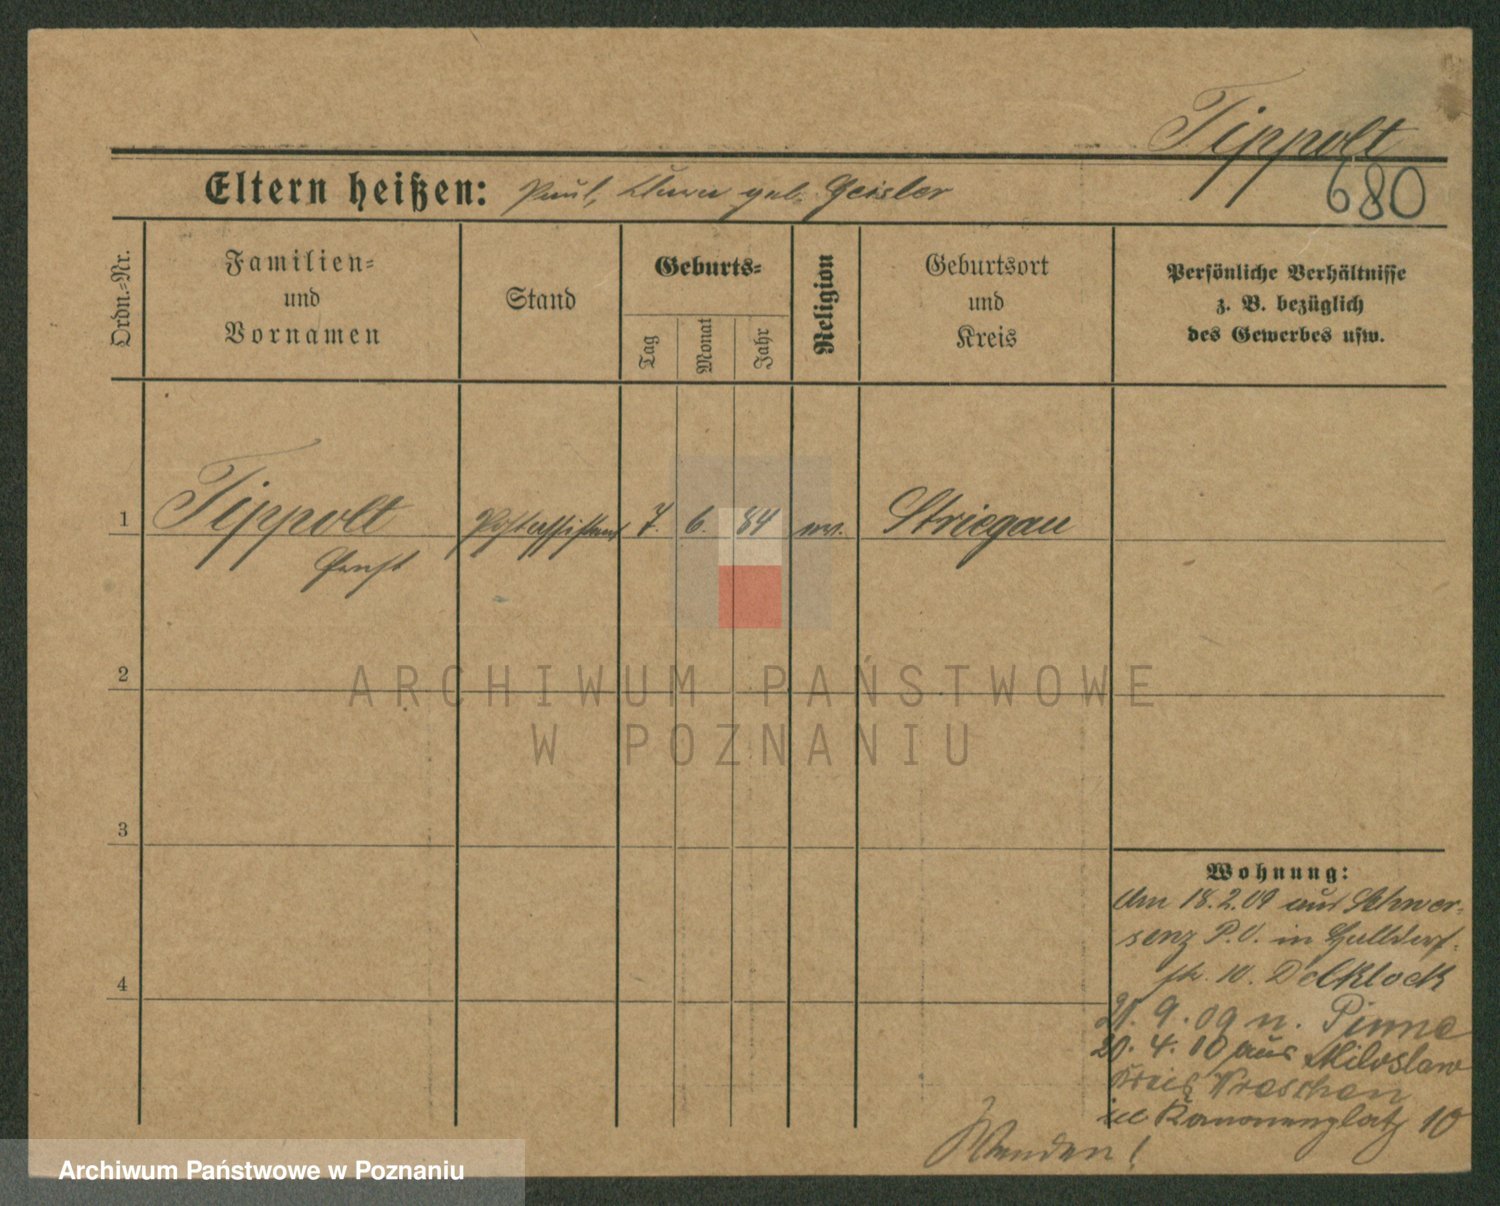 Tippolt
680
Eltern heißen: Paul, geb. Geisler
Ordn.-Nr.
Familien-
und
Vornamen
Stand
Geburts-
Tag
Monat
Jahr
Religion
Geburtsort
und
Kreis
Persönliche Verhältnisse
z. B. bezüglich
des Gewerbes usw.
1 Tippolt Postassistent 7. 6. 84 ev. Striegau
Ernst
2
ARCHIWUM PAŃSTWOWE
W POZNANIU
3
4
Wohnung:
Am 18.2.09 aus Schwer-
senz P.O. in
str. 10.
9. 09 n. Pinne
20. 4. 10 aus Miloslaw
Kreis Wreschen
Kanonenplatz 10
Wenden!
Archiwum Państwowe w Poznaniu